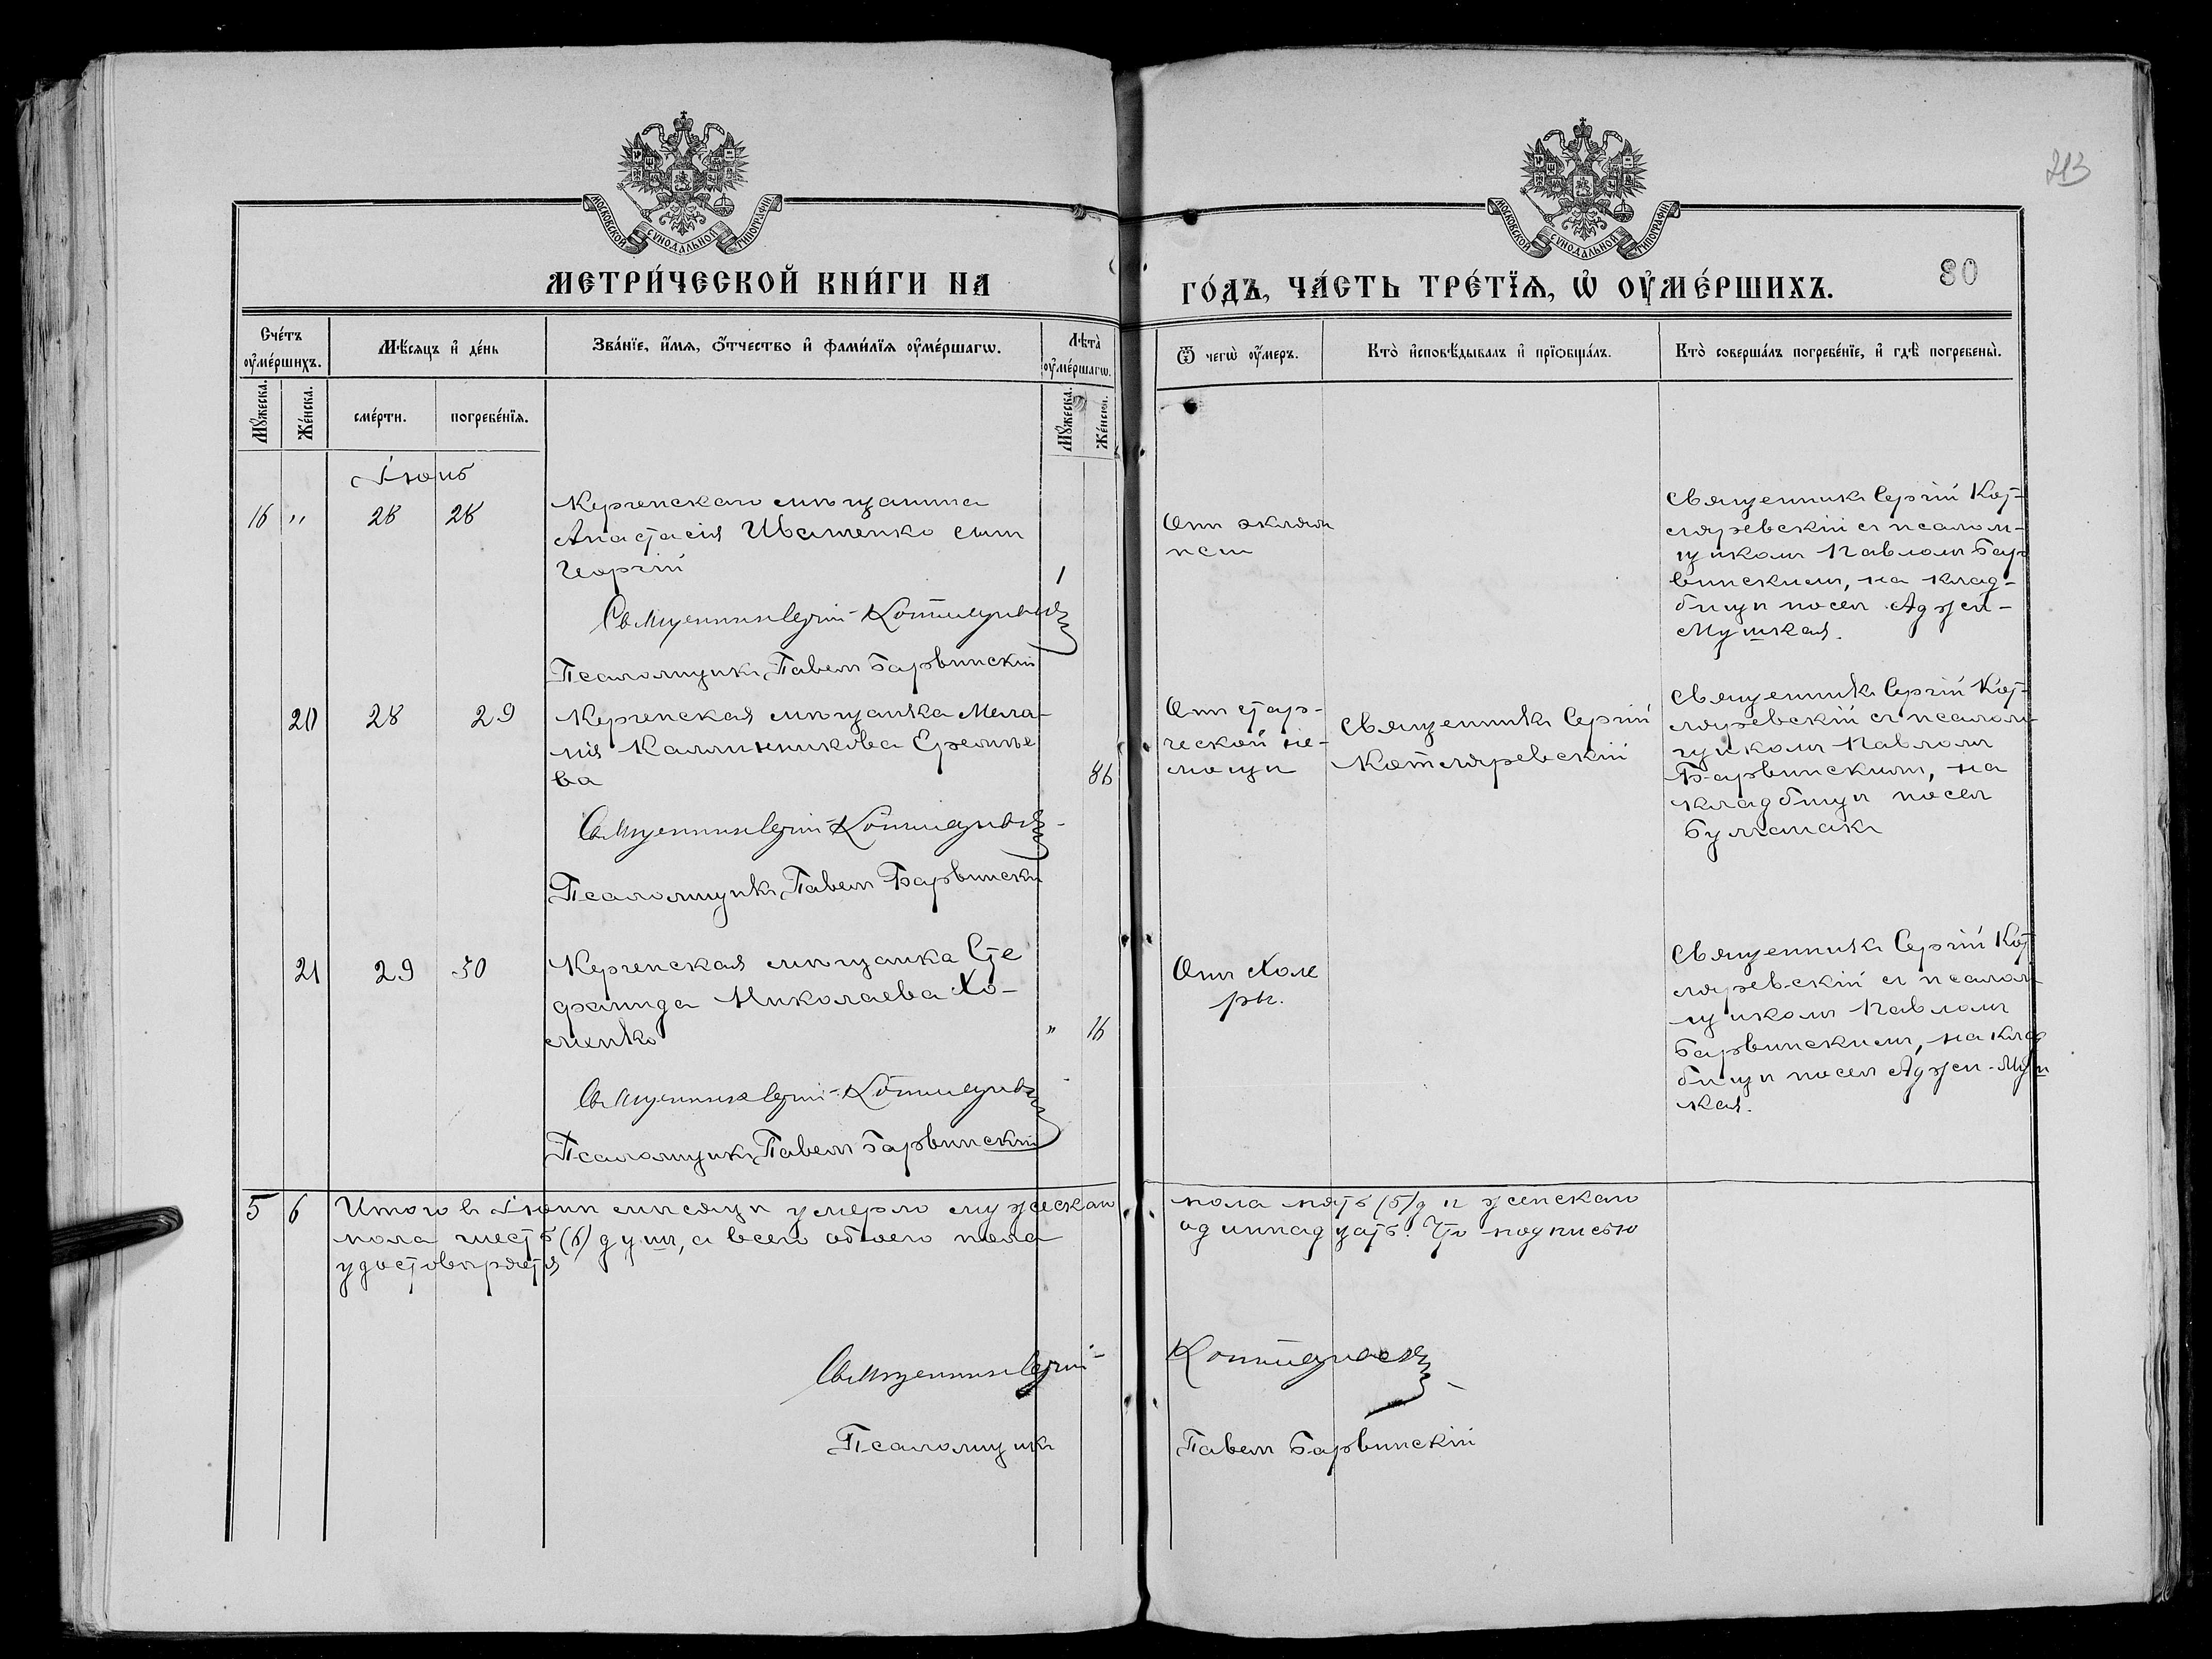 213
МОСКОВСКОЙ СѴНОДАЛЬНОЙ ТИПОГРАФІИ
МОСКОВСКОЙ СѴНОДАЛЬНОЙ ТИПОГРАФІИ
МЕТРИ́ЧЕСКОЙ КНИ́ГИ НА
ГО́ДЪ, ЧА́СТЬ ТРЕ́ТЇѦ, Ѡ҆ ОУ҆МЕ́РШИХЪ.
80
Сче́тъ оу҆ме́ршихъ.
Мꙋ́жеска.
Же́нска.
Мѣ́сяцъ и҆ де́нь
сме́рти.
погребе́нїя.
Зва́нїе, и҆́мя, ѻ҆́тчество и҆ фами́лїя оу҆ме́ршагѡ.
Лѣ́та оу҆ме́ршагѡ.
Мꙋ́жеска.
Же́нска.
Ѿ чегѡ̀ оу҆́меръ.
Кто̀ и҆сповѣ́дывалъ и҆ прїѡбща́лъ.
Кто̀ соверша́лъ погребе́нїе, и҆ гдѣ̀ погребены̀.
Іюнь
16 " 28 28
Керченскаго мѣщанина
Анастасія Иватенко сынъ
Георгій
1
Священникъ Сергій Котляревскій
Псаломщикъ Павелъ Барвинскій
Отъ эклям
псіи
Священникъ Сергій Кот-
ляревскій съ псалом-
щикомъ Павломъ Бар
винскимъ, на клад-
бищѣ посел. Аджи-
Мушкая.
20 28 29
Керченская мѣщанка Мела-
нія Каллинникова Еремѣе
ва
86
Священникъ Сергій Котляревскій
Псаломщикъ Павелъ Барвински
Отъ стар-
ческой не-
мощи
Священникъ Сергій
Котляревскій
Священникъ Сергій Кот-
ляревскій съ псалом-
щикомъ Павломъ
Барвинскимъ, на
кладбищѣ посел
Булганакъ
21 29 30
Керченская мѣщанка Сте
фанида Николаева Хо-
менко
" 16
Священникъ Сергій Котляревскій
Псаломщикъ Павелъ Барвинскій
Отъ холе
ры.
Священникъ Сергій Кот
ляревскій съ псалом
щикомъ Павломъ
Барвинскимъ, на клад
бищѣ посел Аджи-Муш
кая.
5 6 Итого въ Іюнѣ мѣсяцѣ умерло мужескаго пола пять (5) д и женскаго
пола шесть (6) душъ, а всего обоего пола одиннадцать. Что подписью
удостовѣряется
Священникъ Сергій Котляревскій
Псаломщикъ Павелъ Барвинскій